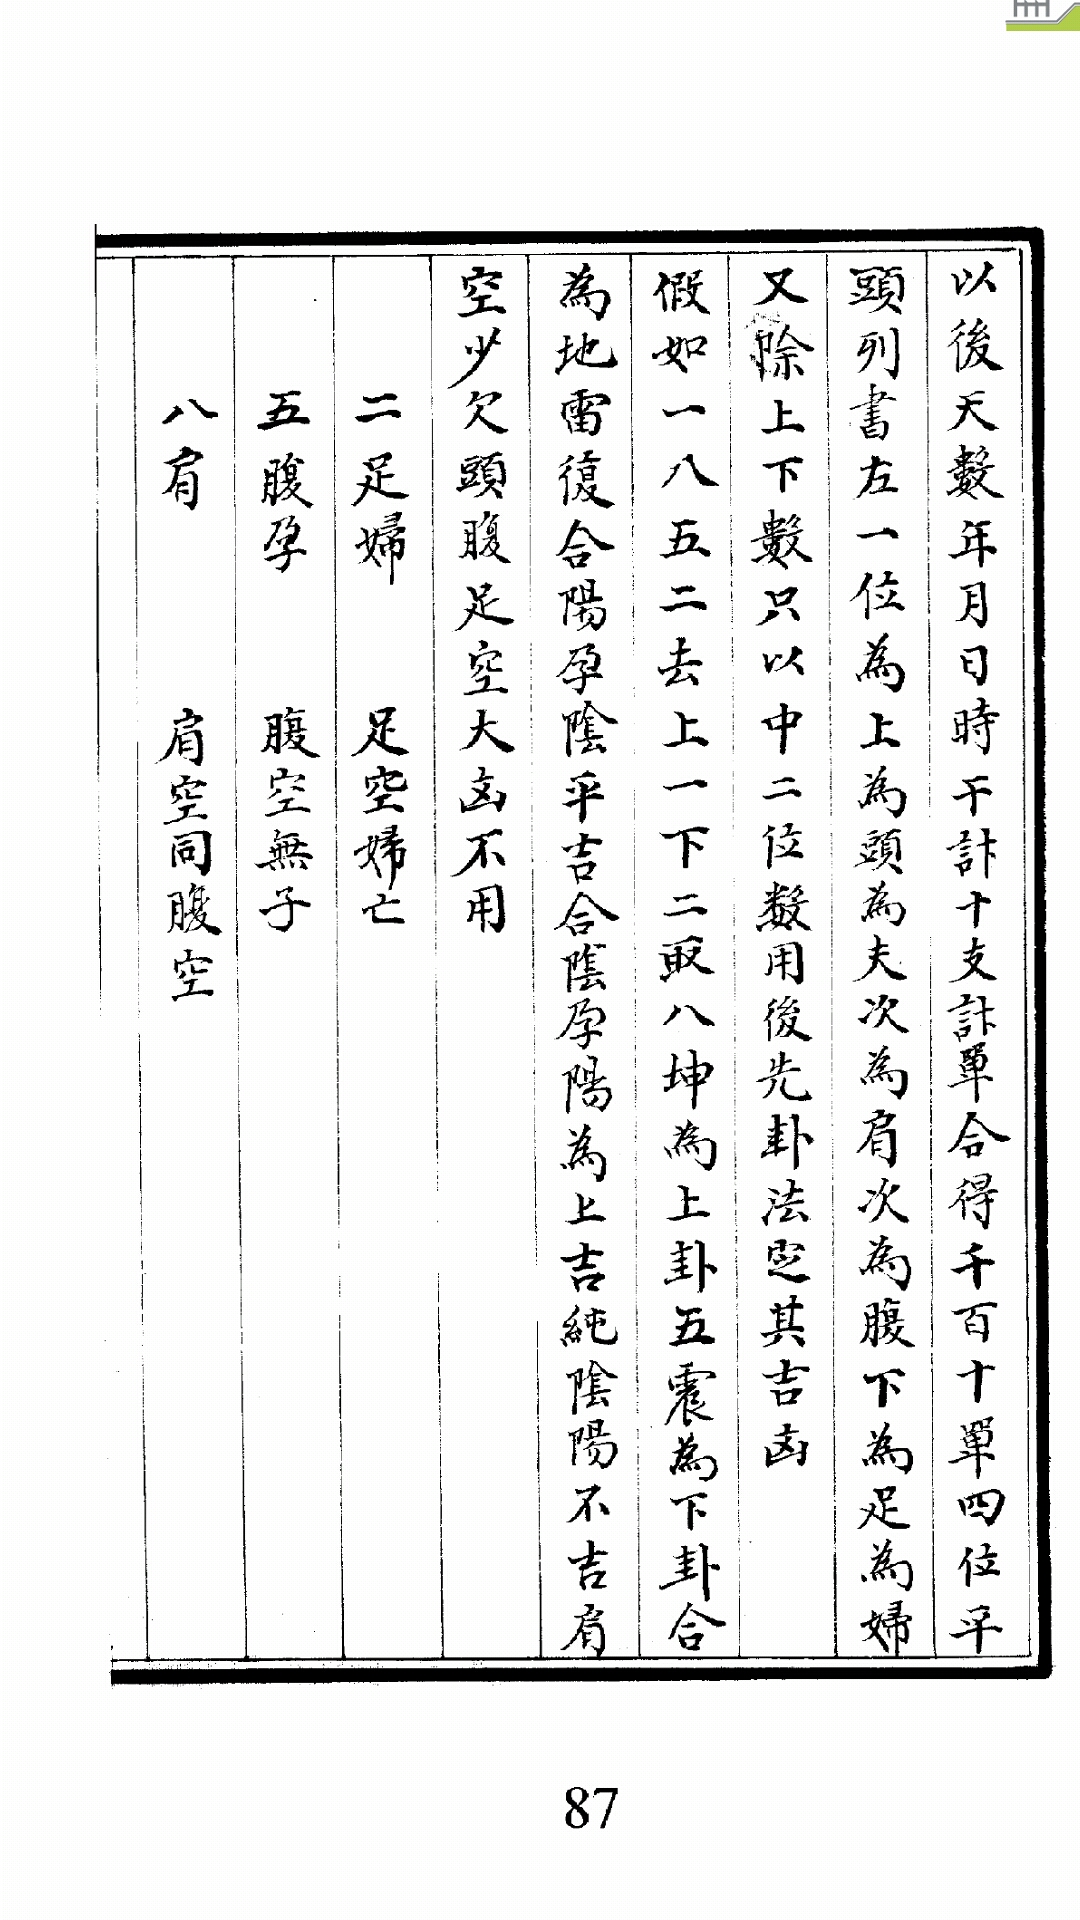 以後天數年月日時干計十支計單合得千百十單四位平
頭列書左一位為上為頭為夫次為肩次為腹下為足為婦
又除上下數只以中二位數用後先卦法定其吉凶
假如一八五二去上一下二取八坤為上卦五震為下卦合
為地雷復合陽孕陰平吉合陰孕陽為上吉純陰陽不吉肩
空少欠頭腹足空大凶不用
二足婦　足空婦亡
五腹孕　腹空無子
八肩　肩空同腹空
87